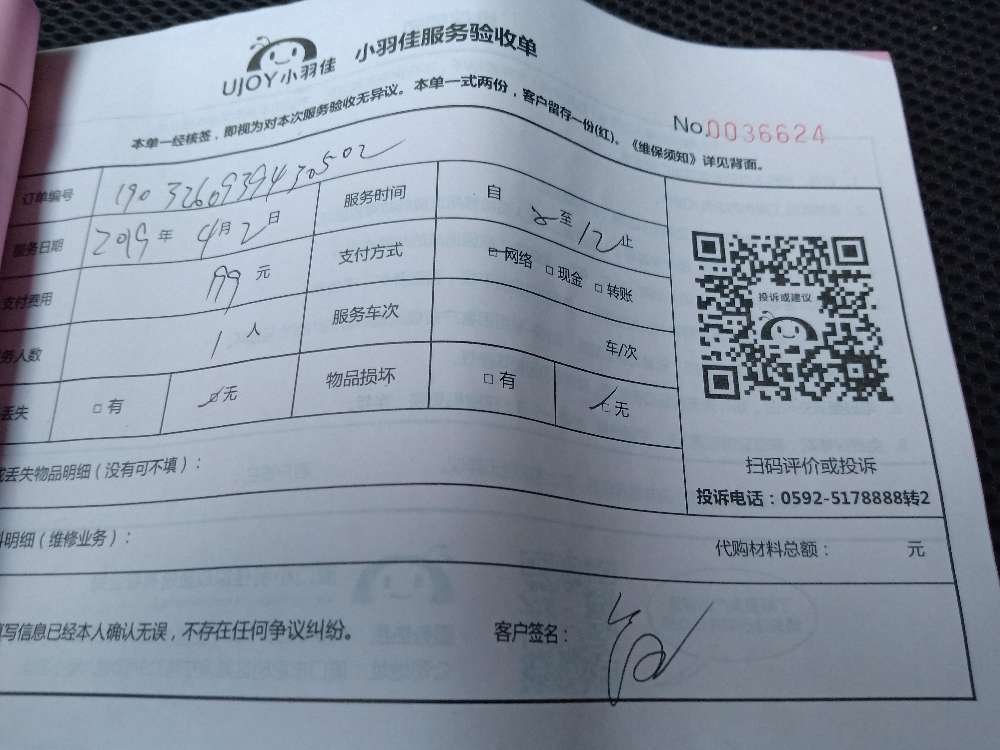 UJOY小羽佳 小羽佳服务验收单
本单一经核签，即视为对本次服务验收无异议。本单一式两份，客户留存一份(红)。《维保须知》详见背面。
No.0036624
订单编号 1903260939430502 服务时间 自 8 至 12 止
服务日期 2019 年 4 月 2 日 支付方式 □网络 □现金 □转账
支付费用 99 元 服务车次 车/次
务人数 1 人 物品损坏 □有 □无
丢失 □有 □无
投诉或建议
扫码评价或投诉
投诉电话：0592-5178888转2
丢失物品明细（没有可不填）：
料明细（维修业务）： 代购材料总额： 元
填写信息已经本人确认无误，不存在任何争议纠纷。 客户签名：